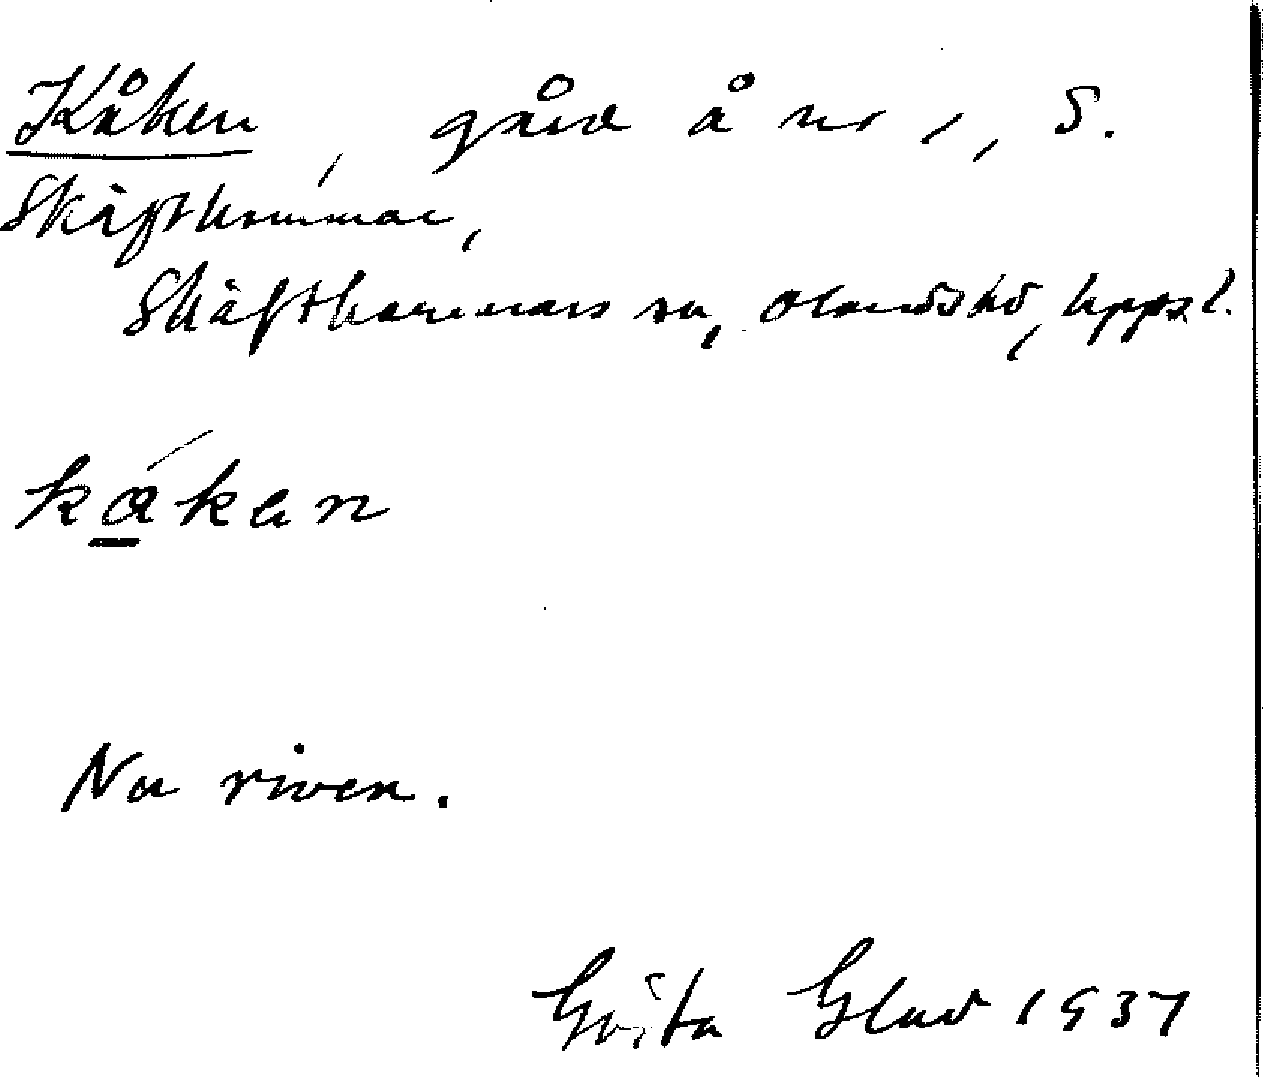 Kåken, gård å nr 1, S.
Skäfthammar,
Skäfthammars sn, Olands hd, Uppl.
kåkan
Nu riven.
Göta Glad 1937